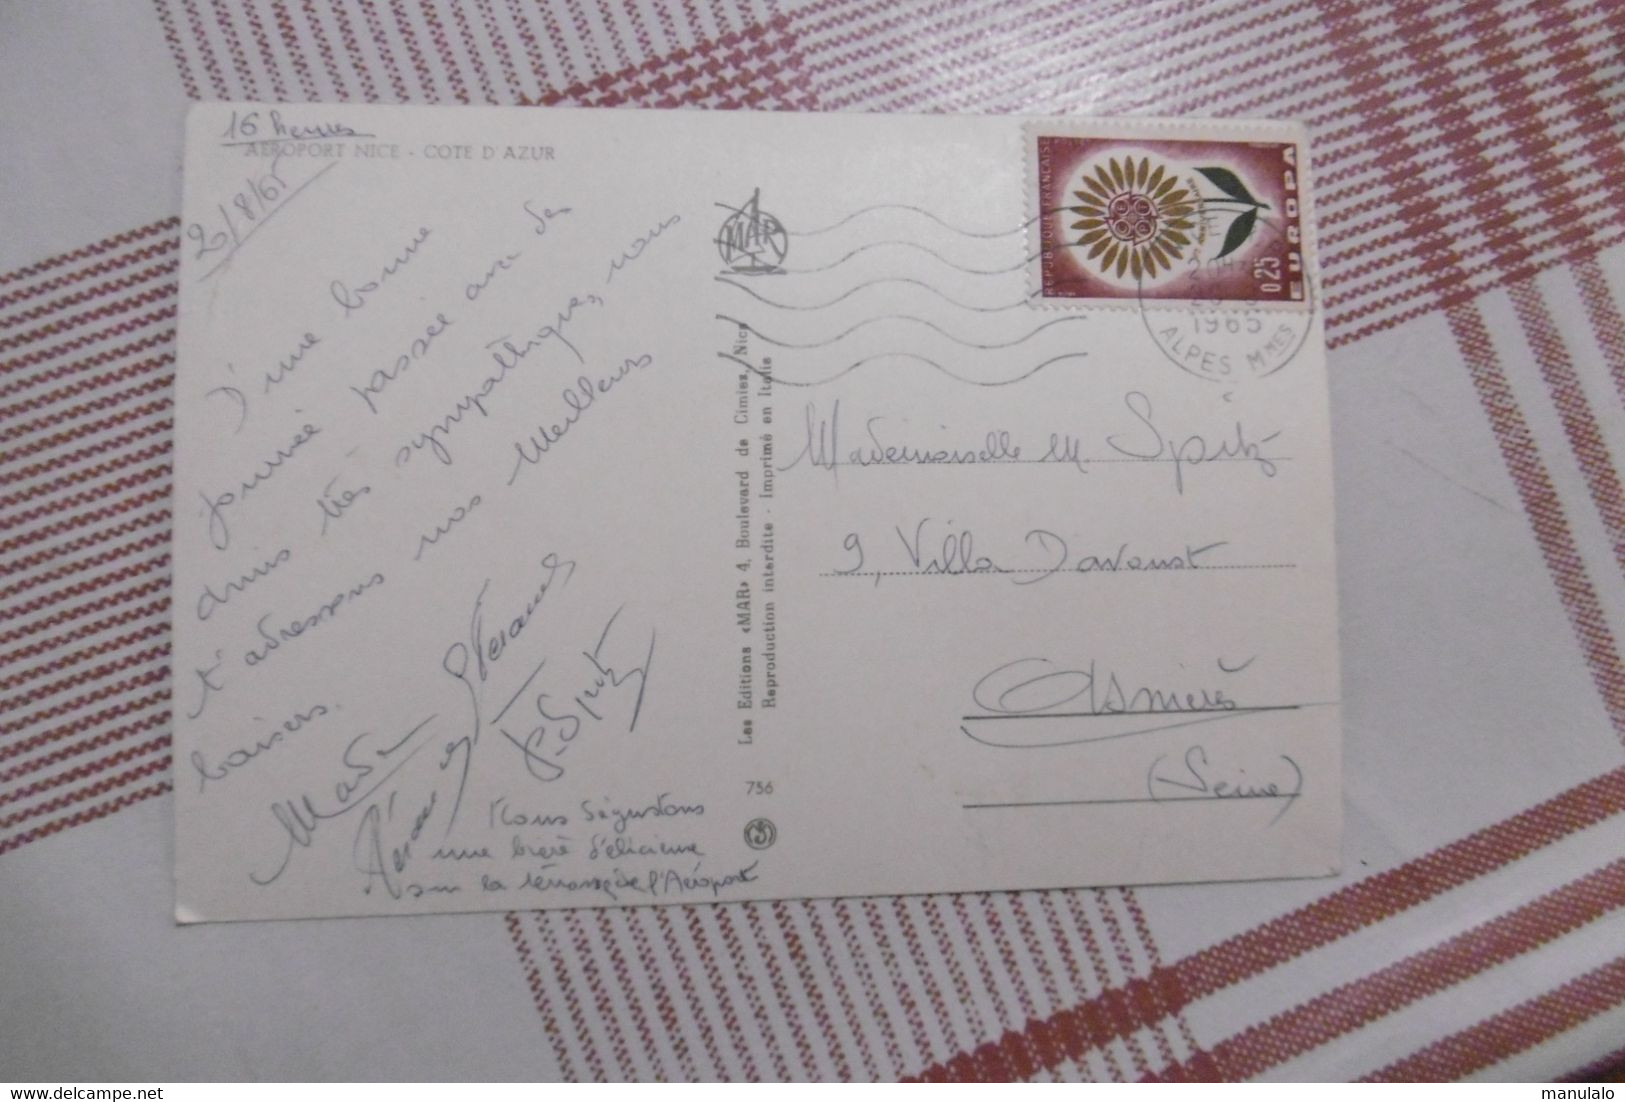 16 heures
AEROPORT NICE - COTE D'AZUR
2/8/65
D'une bonne
journée passée avec des
amis très sympathiques, nous
t'adressons nos meilleurs
baisers.
P. Spitz
Nous dégustons
une bière délicieuse
sur la terrasse de l'Aéroport
MAR
Les Editions «MAR» 4, Boulevard de Cimiez, Nice
Reproduction interdite - Imprimé en Italie
756
REPUBLIQUE FRANÇAISE
0,25
EUROPA
1965
ALPES MMES
Mademoiselle M. Spitz
9, Villa Davoust
Asnières
(Seine)
manulalo